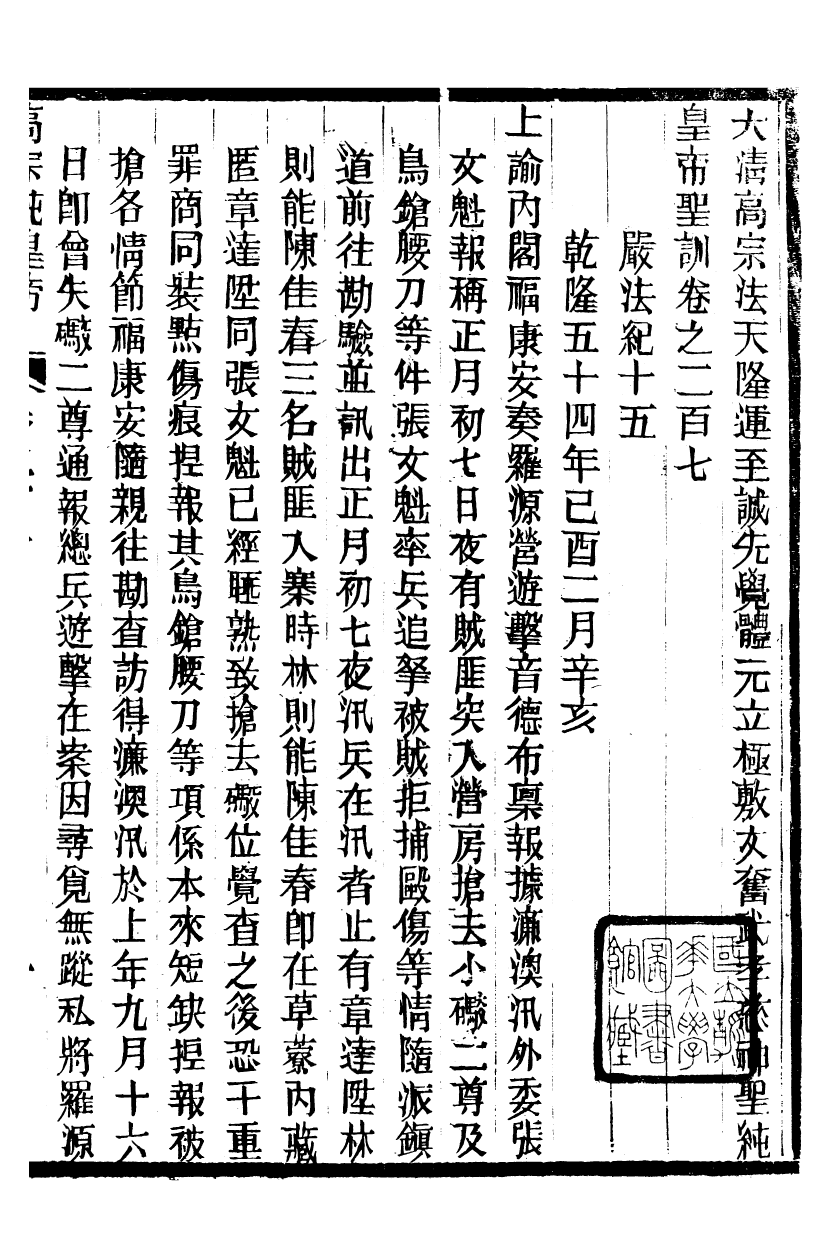 大清高宗法天隆運至誠先覺體元立極敷文奮武孝慈神聖純
皇帝聖訓卷之二百七
嚴法紀十五
乾隆五十四年己酉二月辛亥
上諭內閣福康安奏羅源營遊擊音德布稟報據濂澳汛外委張
文魁報稱正月初七日夜有賊匪突入營房搶去小礮二尊及
鳥鎗腰刀等件張文魁率兵追拏被賊拒捕毆傷等情隨派鎮
道前往勘驗並訊出正月初七夜汛兵在汛者止有章達陞林
則能陳佳春三名賊匪入寨時林則能陳佳春即在草藔內藏
匿章達陞同張文魁已經睡熟致搶去礮位覺查之後恐干重
罪商同裝點傷痕捏報其鳥鎗腰刀等項係本來短缺捏報被
搶各情節福康安隨親往勘查訪得濂澳汛於上年九月十六
日即曾失礮二尊通報總兵遊擊在案因尋覓無蹤私將羅源
高宗純皇帝
國立清華大學圖書館藏